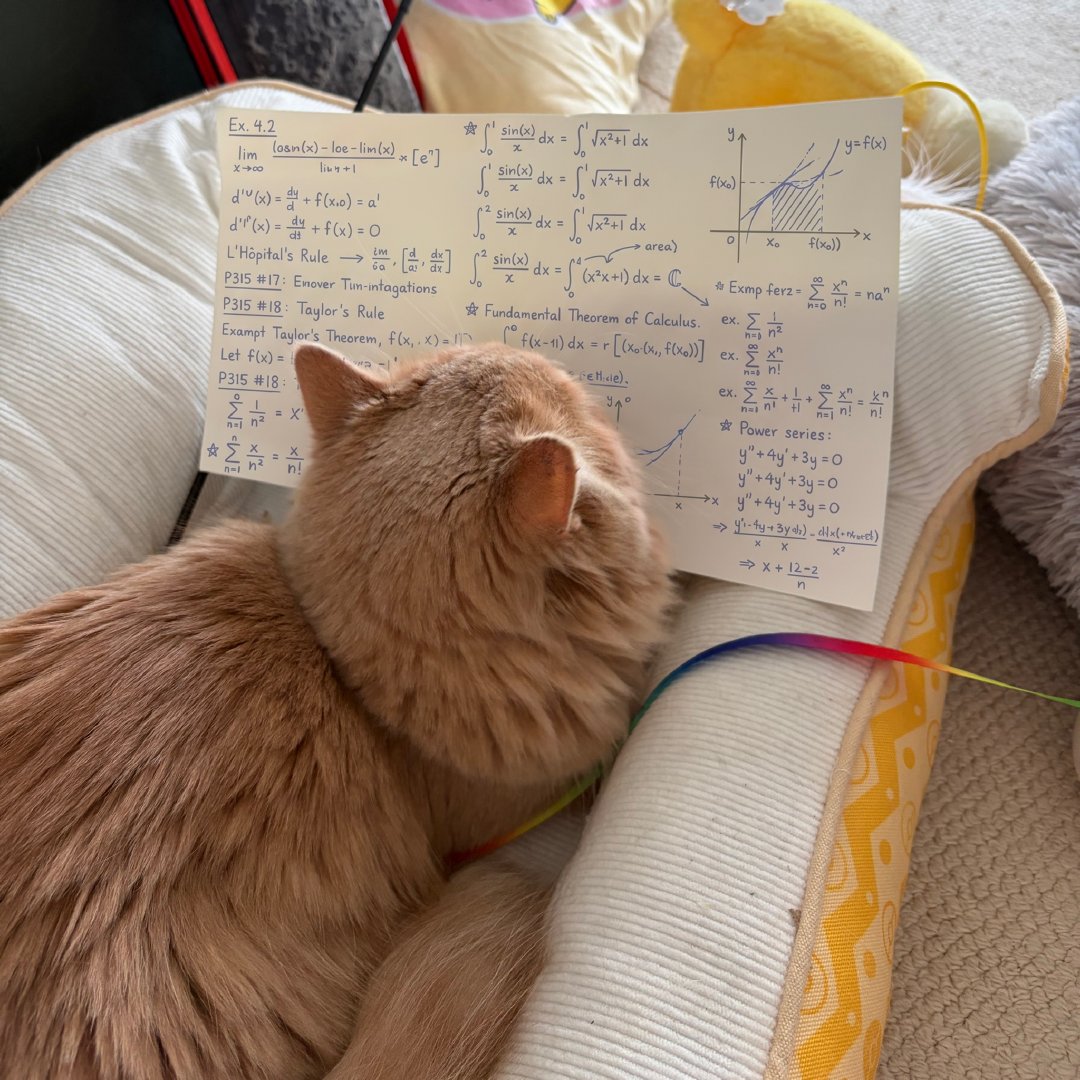 Ex. 4.2
lim x→∞ (osn(x) - loe - lim(x) / +1 * [eⁿ]
(x) = dy/d + f(x,0) = a'
(x) = + f(x) = 0
L'Hôpital's Rule →
P315 #17: Enover Tun-intagations
P315 #18: Taylor's Rule
Exampt Taylor's Theorem, f(x,, x) =
Let f(x) =
P315 #18:
∑ n=1 0 1/n² = X'
☆ ∑ n=1 n x/n² = x/n!
☆ ∫₀¹ sin(x)/x dx = ∫₀¹ √x²+1 dx
∫₀¹ sin(x)/x dx = ∫₀¹ √x²+1 dx
∫₀² sin(x)/x dx = ∫₀¹ √x²+1 dx
area)
∫₀² sin(x)/x dx = ∫₀ (x²x+1) dx = ℂ
☆ Fundamental Theorem of Calculus.
∫ f(x-1i) dx = r[(x₀·(x,, f(x₀))]
y
x
y
y=f(x)
f(x₀)
0
x₀
f(x₀))
x
☆ Exmp ferz = ∑ n=0 ∞ xⁿ/n! = naⁿ
ex. ∑ n=1 1/n²
ex. ∑ n=0 ∞ xⁿ/n!
ex. ∑ n=1 ∞ x/n' + 1/+1 + ∑ n=1 ∞ xⁿ/n! =
☆ Power series:
y'' + 4y' + 3y = 0
y'' + 4y' + 3y = 0
y'' + 4y' + 3y = 0
⇒ x + 12-2/n